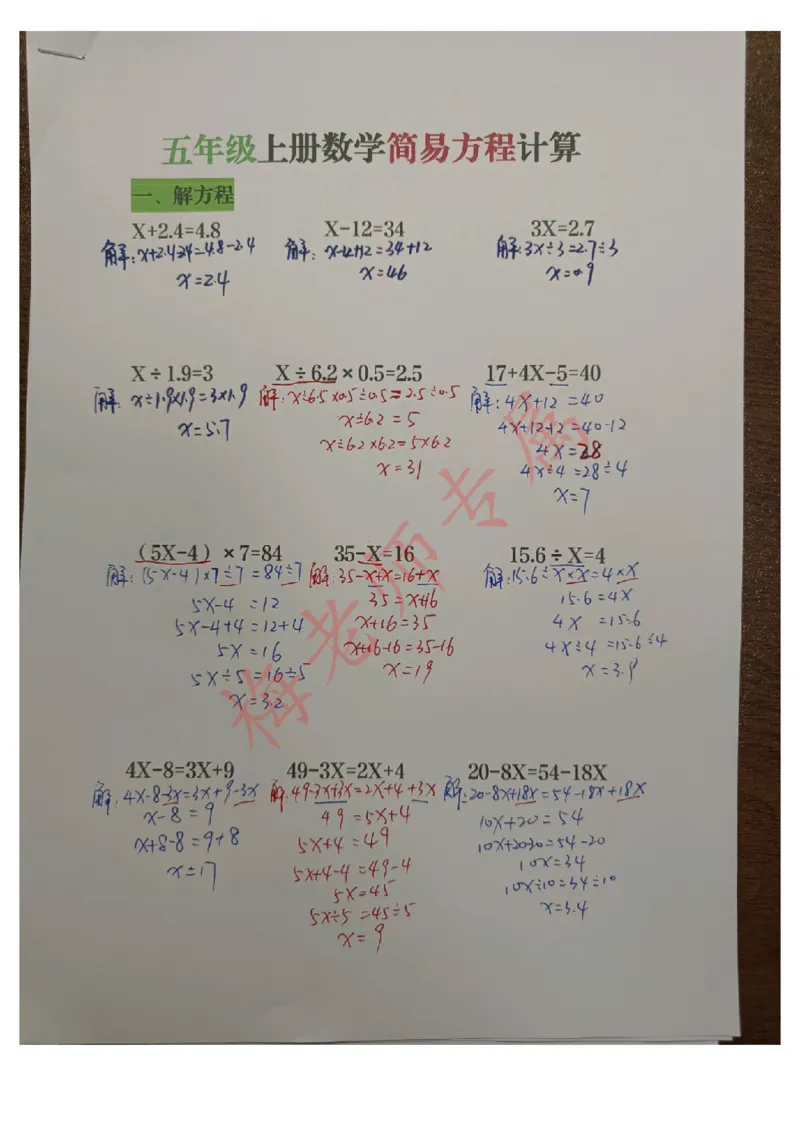 五年级上册数学简易方程计算
一、解方程
X+2.4=4.8 X-12=34 3X=2.7
解:x+2.4-2.4=4.8-2.4 解:x-12+12=34+12 解:3x÷3=2.7÷3
x=2.4 x=46 x=0.9
X÷1.9=3 X÷6.2×0.5=2.5 17+4X-5=40
解:x÷1.9×1.9=3×1.9 解:x÷6.5×0.5÷0.5=2.5÷0.5 解:4X+12=40
x=5.7 x÷6.2=5 4X+12-12=40-12
x÷6.2×6.2=5×6.2 4X=28
x=31 4X÷4=28÷4
x=7
(5X-4)×7=84 35-X=16 15.6÷X=4
解:(5X-4)×7÷7=84÷7 解:35-X+X=16+X 解:15.6÷X×X=4×X
5X-4=12 35=X+16 15.6=4X
5X-4+4=12+4 X+16=35 4X=15.6
5X=16 X+16-16=35-16 4X÷4=15.6÷4
5X÷5=16÷5 x=19 x=3.9
x=3.2
4X-8=3X+9 49-3X=2X+4 20-8X=54-18X
解:4X-8-3X=3X+9-3X 解:49-3X+3X=2X+4+3X 解:20-8X+18X=54-18X+18X
x-8=9 49=5X+4 10X+20=54
x+8-8=9+8 5X+4=49 10X+20-20=54-20
x=17 5X+4-4=49-4 10X=34
5X=45 10X÷10=34÷10
5X÷5=45÷5 x=3.4
x=9
梅老师专属